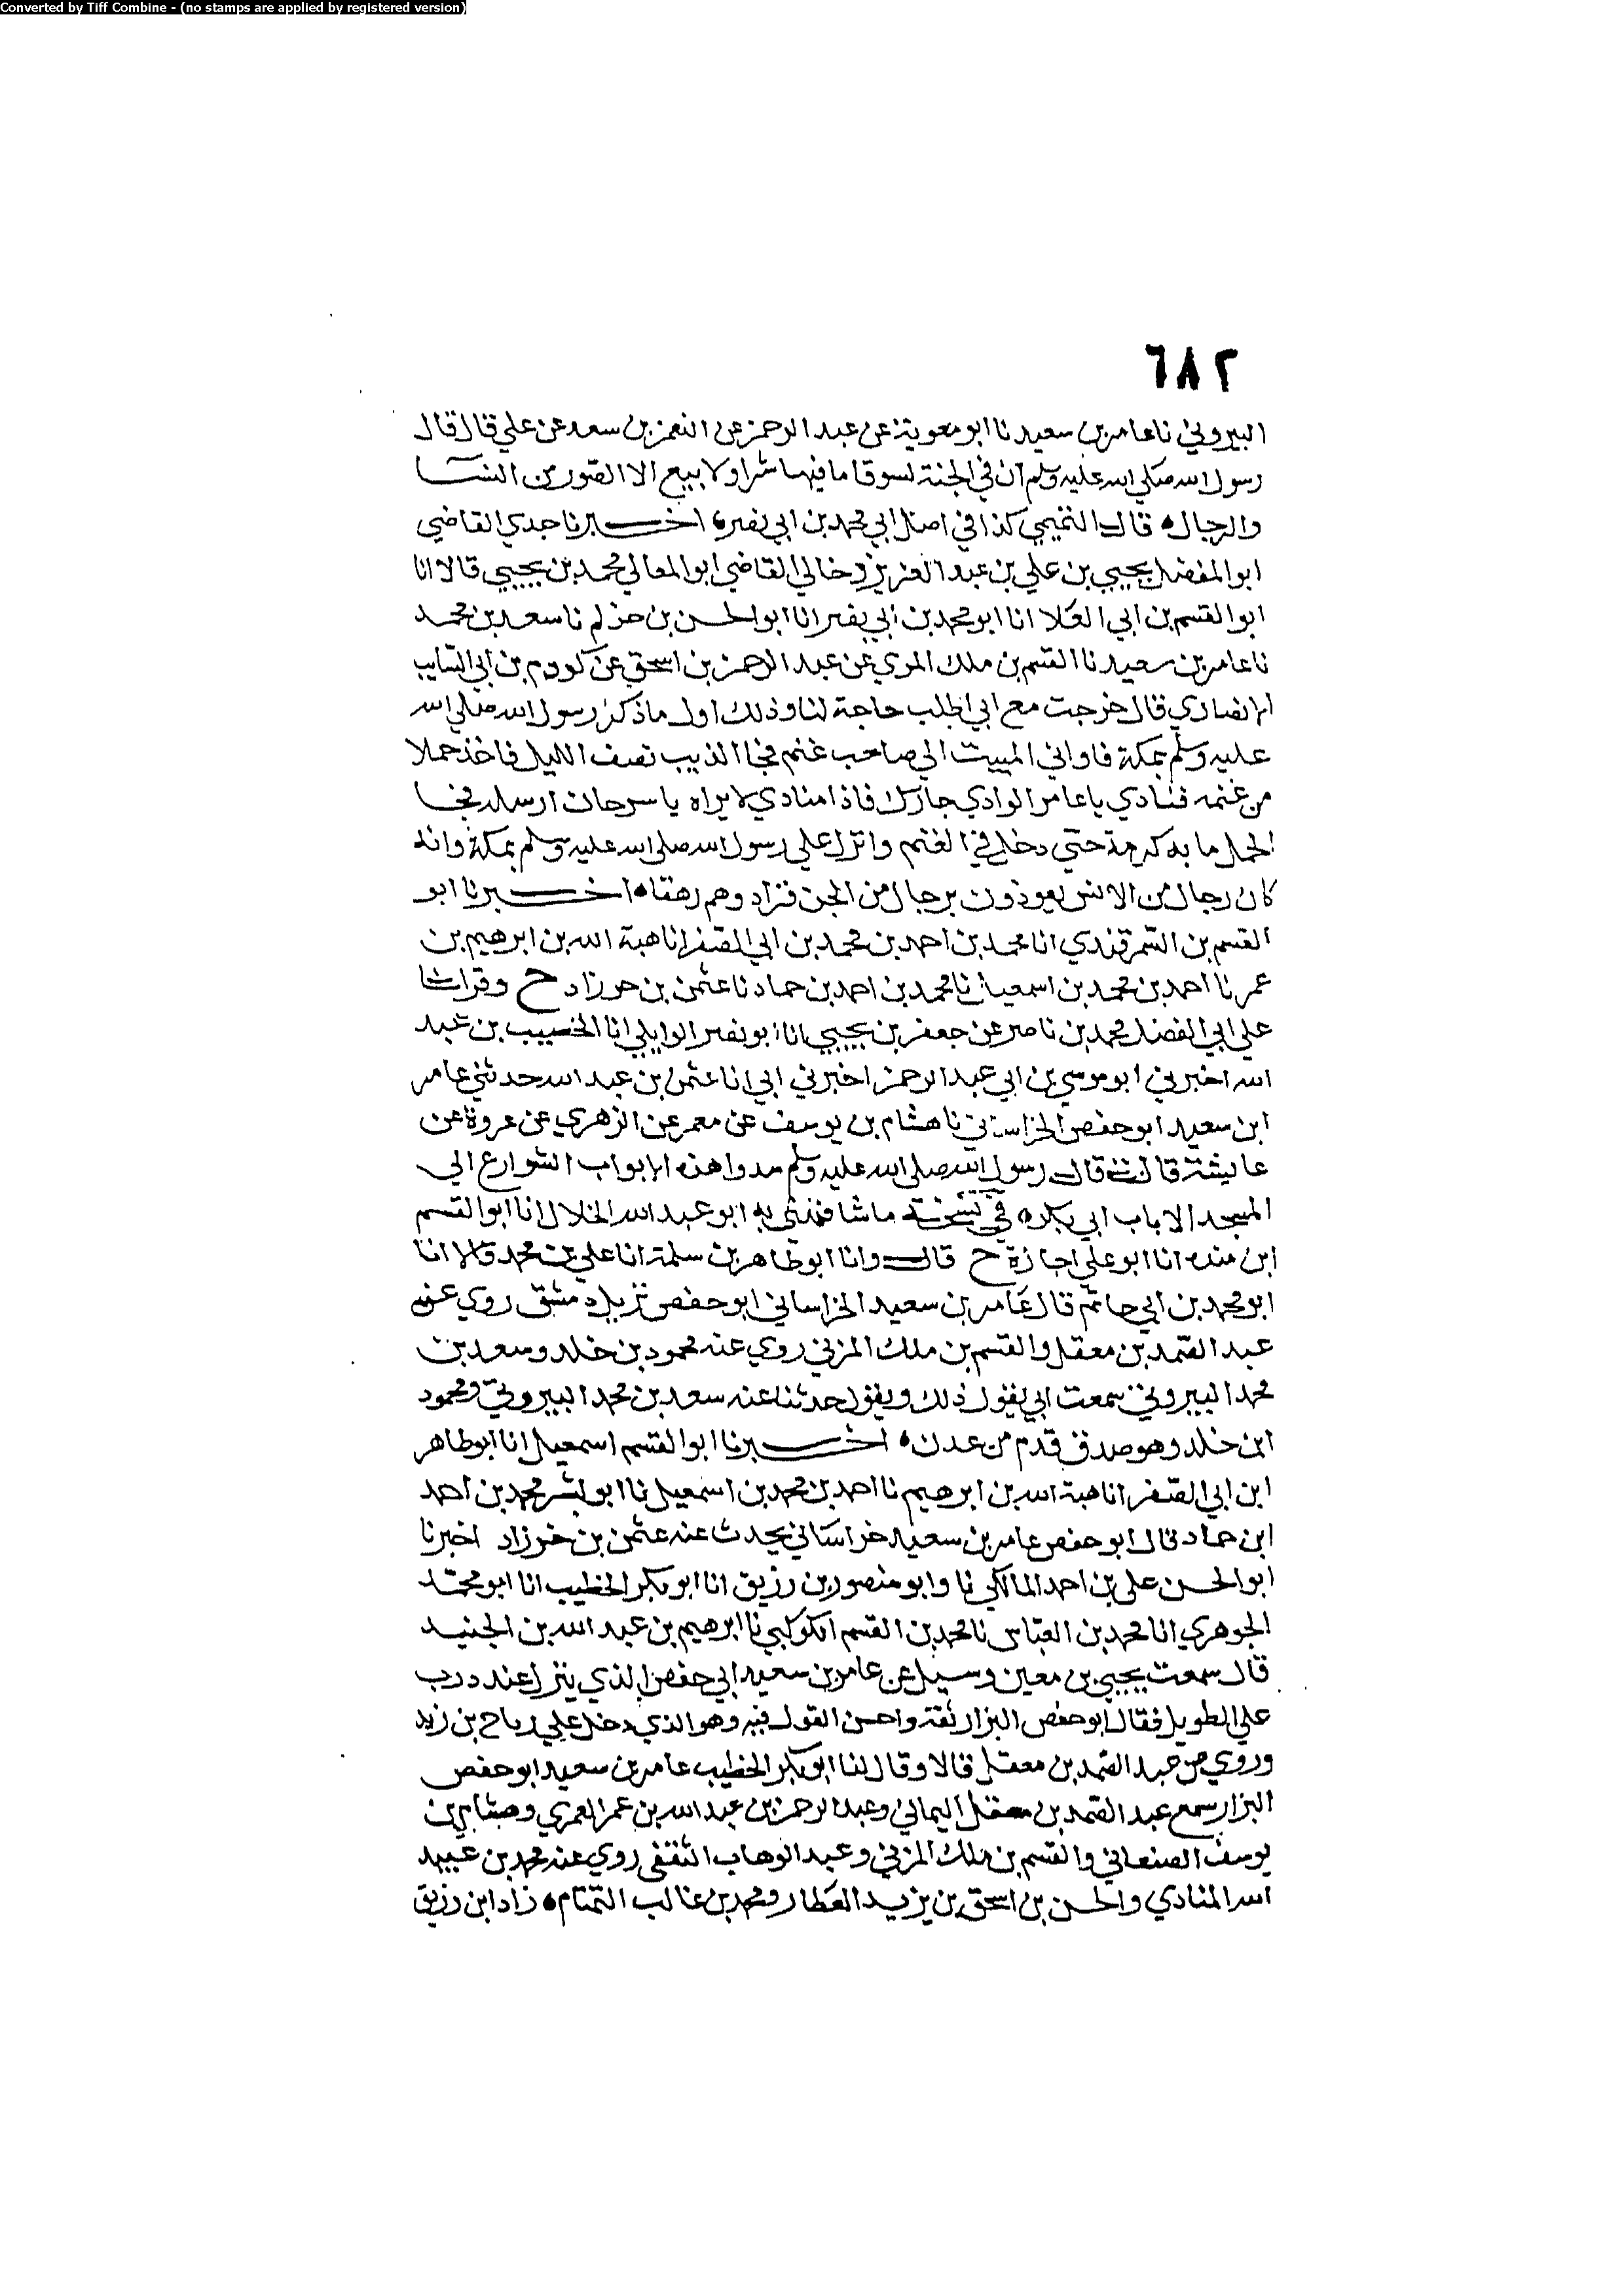 Converted by Tiff Combine - (no stamps are applied by registered version)
٦٨٢
البيروتي نا عامر بن سعيد نا ابو معوية عن عبد الرحمن عن النعمن بن سعد عن علي قال قال
رسول الله صلى الله عليه وسلم ان في الجنة لسوقا ما فيها شرا ولا بيع الا الصور من النسا
والرجال ه قال التميمي كذا في اصل ابي محمد بن ابي نصر ه اخبرنا جدي القاضي
ابو المفضل يحيي بن علي بن عبد العزيز وخالي القاضي ابو المعالي محمد بن يحيي قالا انا
ابو القسم بن ابي العلا انا ابو محمد بن ابي نصر انا ابو الحسن بن حذلم نا سعد بن محمد
نا عامر بن سعيد نا القسم بن ملك المري عن عبد الرحمن بن اسحق عن كردم بن ابي السايب
الانصاري قال خرجت مع ابي اطلب حاجة لنا وذلك اول ما ذكر رسول الله صلي الله
عليه وسلم بمكة فاواني المبيت الي صاحب غنم فجا الذيب نصف الليل فاخذ حملا
من غنمه فنادي يا عامر الوادي جارك فاذا منادي لا يراه يا سرحان ارسله فجا
الحمل ما به كدمة حتي دخل في الغنم وانزل علي رسول الله صلى الله عليه وسلم بمكة وانه
كان رجال من الانس يعوذون برجال من الجن فزادوهم رهقا ه اخبرنا ابو
القسم بن السمرقندي انا محمد بن احمد بن محمد بن ابي الصقر انا هبة الله بن ابرهيم بن
عمر نا احمد بن محمد بن اسمعيل نا محمد بن احمد بن حماد نا عثمن بن خرزاد ح وقرات
علي ابي الفضل محمد بن ناصر عن جعفر بن يحيي انا ابو نصر الوايلي انا الخصيب بن عبد
الله اخبرني ابو موسي بن ابي عبد الرحمن اخبرني ابي انا عثمن بن عبد الله حدثني عامر
ابن سعيد ابو حفص الخراساني نا هشام بن يوسف عن معمر عن الزهري عن عروة عن
عايشة قالت قال رسول الله صلى الله عليه وسلم سدوا هذه الابواب الشوارع الي
المسجد الا باب ابي بكر ه في نسخة ما شافهني به ابو عبد الله الخلال انا ابو القسم
ابن منده انا ابو علي اجازة ح قال وانا ابو طاهر بن سلمة انا علي بن محمد قالا انا
ابو محمد بن ابي حاتم قال عامر بن سعيد الخراساني ابو حفص نزيل دمشق روي عن
عبد الصمد بن معقل والقسم بن ملك المزني روي عنه محمود بن خلد وسعد بن
محمد البيروتي سمعت ابي يقول ذلك ويقول حدثنا عنه سعد بن محمد البيروتي ومحمود
ابن خلد وهو صدق قدم من عدن ه اخبرنا ابو القسم اسمعيل انا ابو طاهر
ابن ابي الصقر انا هبة الله بن ابرهيم نا احمد بن محمد بن اسمعيل نا ابو بشر محمد بن احمد
ابن حماد قال ابو حفص عامر بن سعيد خراساني يحدث عنه عثمن بن خرزاد اخبرنا
ابو الحسن علي بن احمد المالكي نا وابو منصور بن رزيق انا ابو بكر الخطيب انا ابو محمد
الجوهري انا محمد بن العباس نا محمد بن القسم الكوكبي نا ابرهيم بن عبد الله بن الجنيد
قال سمعت يحيي بن معين وسيل عن عامر بن سعيد ابي حفص الذي ينزل عند درب
علي الطويل فقال ابو حفص البزار ثقة واحسن القول فيه وهو الذي دخل علي رباح بن زيد
وروي عن عبد الصمد بن معقل قالا وقال لنا ابو بكر الخطيب عامر بن سعيد ابو حفص
البزار سمع عبد الصمد بن معقل اليماني وعبد الرحمن بن عبد الله بن عمر العمري وهشام بن
يوسف الصنعاني والقسم بن ملك المزني وعبد الوهاب الثقفي روي عنه محمد بن عبيد
الله المنادي والحسن بن اسحق بن يزيد العطار ومحمد بن غالب التمتام ه زاد ابن رزيق